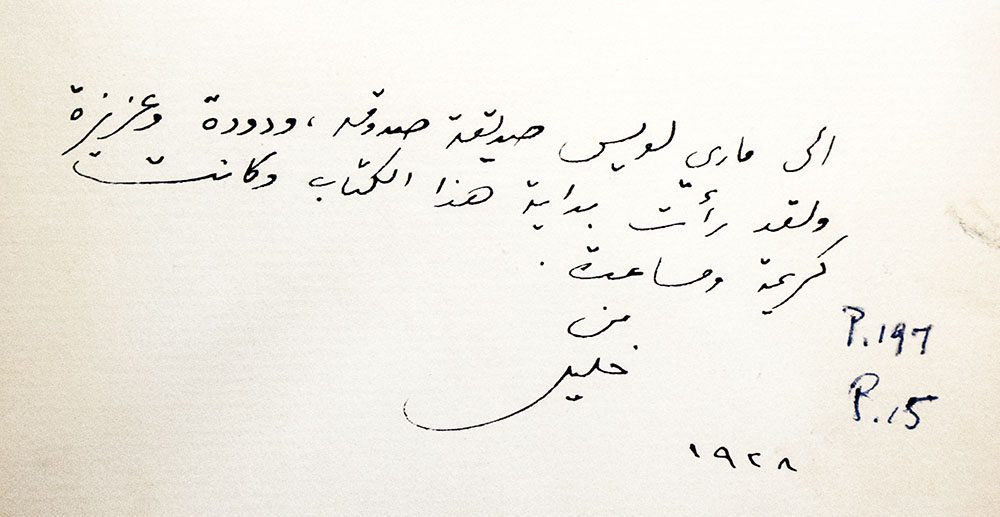 الى ماري لويس صديقة صدوقه، ودودة وعزيزة
ولقد رأت بداية هذا الكتاب وكانت
كريمة ومساعدة.
من
خليل
١٩٢٨
P. 197
P. 15